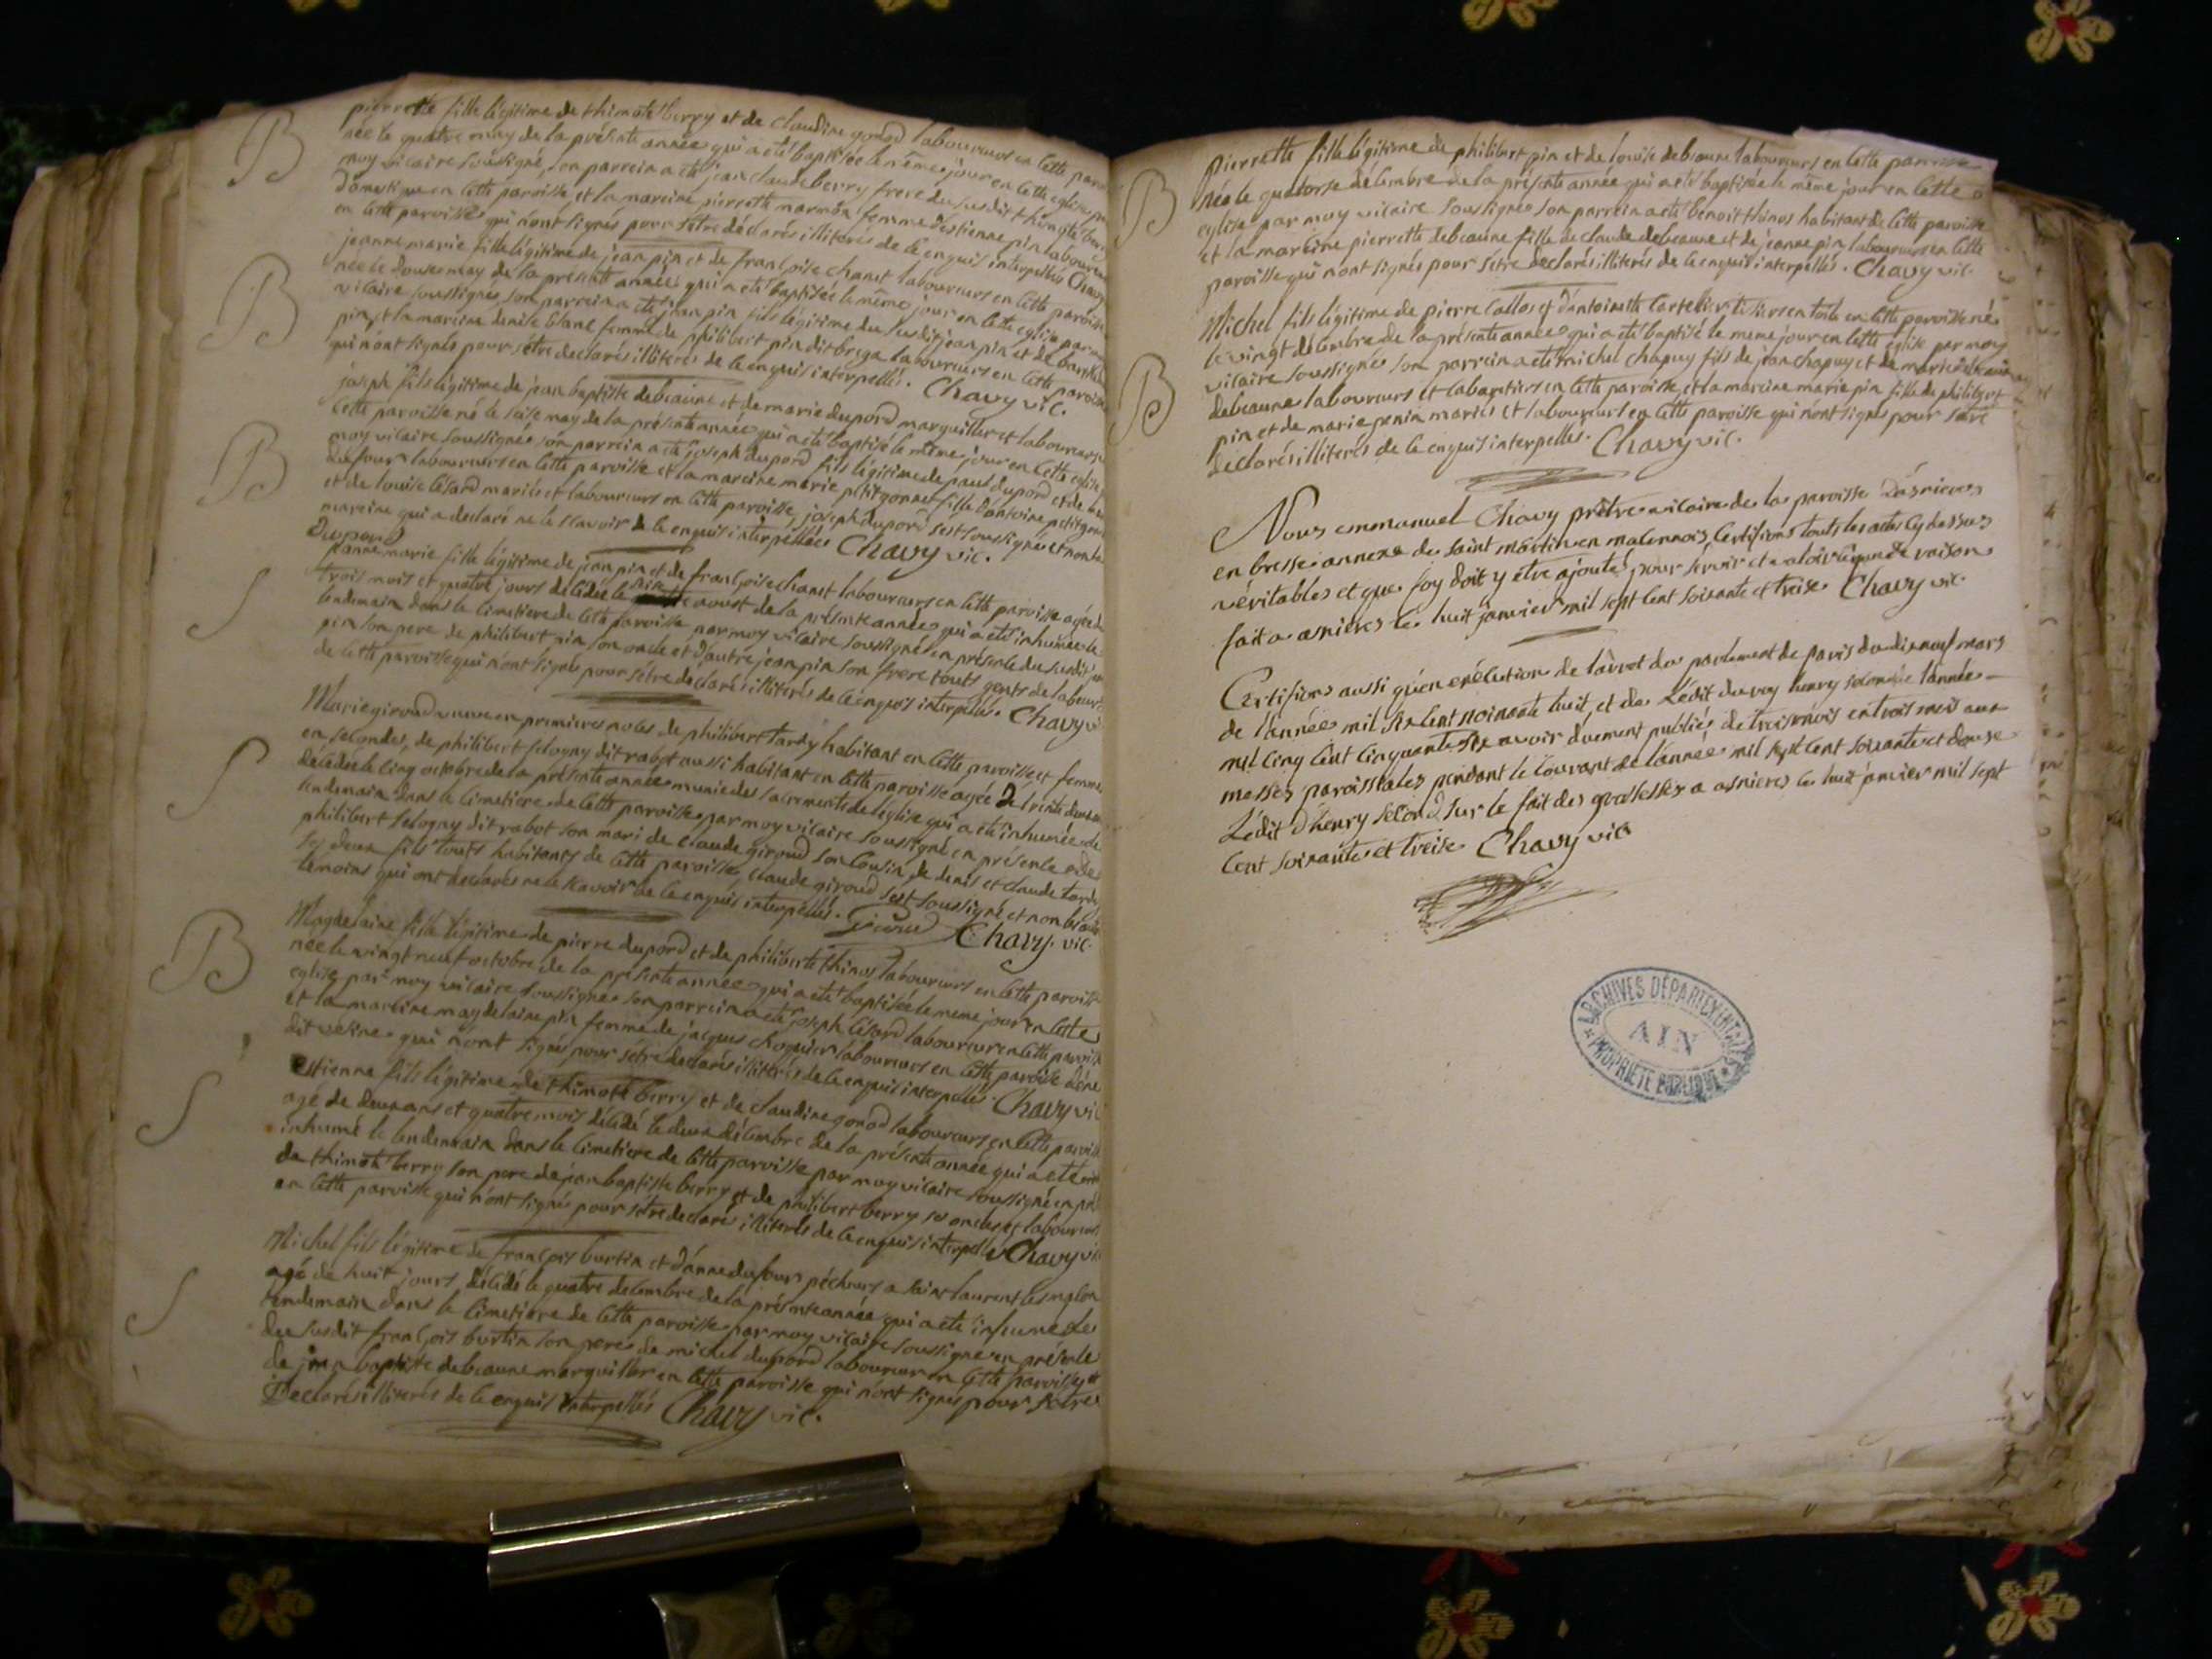 B
pierrette fille légitime de thimoté berry et de claudine gonod laboureurs en cette
née le quatre may de la présente année qui a eté baptisée le même jour en cette eglise
moy vicaire soussigné, son parrein a eté jean claude berry frere du susdit thimoté
domestique en cette paroisse et la mareine pierrette marmon femme d'estienne pin
en cette paroisse qui n'ont signés pour s'être déclarés illiterés de ce enquis interpellés Chavy
B
jeanne marie fille légitime de jean pin et de françoise chanet laboureurs en cette paroisse
née le douze may de la presente année qui a eté baptisée le même jour en cette eglise par
vicaire soussigné, son parrein a eté jean pin fils légitime du susdit jean pin et de
pin, et la mareine denise blanc femme de philibert pin dit brega laboureurs en cette paroisse
qui n'ont signés pour s'etre declarés illiterés de ce enquis interpellés. Chavy vic.
B
joseph fils légitime de jean baptiste debeaune et de marie dupord marguiller et laboureurs
cette paroisse né le seise may de la présente année qui a eté baptisé le même jour en cette eglise
moy vicaire soussigné son parrein a eté joseph dupord fils légitime de paul dupord et de
dufour laboureurs en cette paroisse et la mareine marie petitgonne fille d'antoine
et de louise lésard mariés et laboureurs en cette paroisse, joseph dupord s'est soussigné et non la
mareine qui a declaré ne le scavoir de ce enquis interpellée Chavy vic.
Dupord
S
jeanne marie fille légitime de jean pin et de françoise chanet laboureurs en cette paroisse agée de
trois mois et quatre jours décedée le seise aoust de la présente année qui a eté inhumée le
lendemain dans le cimetiere de cette paroisse par moy vicaire soussigné en présence du susdit
pin son pere de philibert pin son oncle et d'autre jean pin son frere touts gents de labeur
de cette paroisse qui n'ont signés pour s'être déclarés illiterés de ce enquis interpellés. Chavy
S
Marie giroud veuve en premieres noces de philibert tardy habitant en cette paroisse et femme
en secondes, de philibert sologny dit rabot aussi habitant en cette paroisse agée de trente
décedée le cinq octobre de la présente année munie des sacrements de l'église qui a eté inhumée le
lendemain dans le cimetiere de cette paroisse par moy vicaire soussigné en présence de
philibert sologny dit rabot son mari de claude giroud son cousin, de denis et claude tardy
ses deux fils touts habitants de cette paroisse, claude giroud s'est soussigné et non les
temoins qui ont declarés ne le scavoir de ce enquis interpellés. Giroud Chavy. vic.
B
Magdelaine fille légitime de pierre dupord et de philiberte thinos laboureurs en cette paroisse
née le vingt neuf octobre de la présente année qui a eté baptisée le meme jour en cette
eglise par moy vicaire soussigné son parrein a eté joseph lésard laboureur en cette paroisse
et la mareine magdelaine pin femme de jacques laboureurs en cette paroisse
qui n'ont signés pour s'être declarés illiterés de ce enquis interpellés. Chavy vic
S
Estienne fils légitime de thimoté berry et de claudine gonod laboureurs en cette paroisse
agé de deux ans et quatre mois décédé le deux décembre de la présente année qui a eté
inhumé le lendemain dans le cimetiere de cette paroisse par moy vicaire soussigné en
de thimoté berry son pere de jean baptiste berry et de philibert berry ses oncles et laboureurs
en cette paroisse qui n'ont signés pour s'être declarés illiterés de ce enquis interpellés Chavy
S
Michel fils légitime de françois burtin et d'anne dufour pécheurs a saint laurent les macon
agé de huit jours décédé le quatre decembre de la présente année qui a eté inhumé le
lendemain dans le cimetiere de cette paroisse par moy vicaire soussigné en présence
du susdit françois burtin son pere de michel dupord laboureur en cette paroisse et
de jean baptiste debeaune marguiller en cette paroisse qui n'ont signés pour s'etre
declarés illiterés de ce enquis interpellés Chavy vic.
B
Pierrette fille légitime de philibert pin et de louise debeaune laboureurs en cette paroisse
née le quatorse décembre de la présente année qui a eté baptisée le même jour en cette
eglise par moy vicaire soussigné son parrein a eté benoit thinos habitant de cette paroisse
et la mareine pierrette debeaune fille de claude debeaune et de jeanne pin laboureurs en cette
paroisse qui n'ont signés pour s'etre declarés illiterés de ce enquis interpellés. Chavy vic.
B
Michel fils légitime de pierre callos et d'antoinette cortelier tisiers en toile en cette paroisse né
le vingt décembre de la présente année qui a eté baptisé le meme jour en cette église par moy
vicaire soussigné son parrein a eté michel chapuy fils de jean chapuy et de marie
debeaune laboureurs et cabaretiers en cette paroisse, et la mareine marie pin fille de philibert
pin et de marie penin mariés et laboureurs en cette paroisse qui n'ont signés pour s'etre
déclarés illiterés de ce enquis interpellés. Chavy vic.
Nous emmanuel Chavy prêtre vicaire de la paroisse d'asnieres
en bresse annexe de saint martin en maconnois certifions touts les actes cy dessus
véritables et que foy doit y etre ajoutée pour servir et valoir de raison
fait a asnieres le huit janvier mil sept cent soixante et treise Chavy vic.
Certifions aussi qu'en exécution de l'arret du parlement de paris du dixneuf mars
de l'année mil six cent noinante huit, et de l'édit du roy henry second de l'année
mil cinq cent cinquante six avoir duement publié de trois mois en trois mois aux
messes paroissiales pendant le courant de l'année mil sept cent soixante et douze
L'édit d'henry second sur le fait des grossesses a asnieres le huit janvier mil sept
cent soixante et treise Chavy vic
ARCHIVES DÉPARTEMENTALES
AIN
PROPRIÉTÉ PUBLIQUE